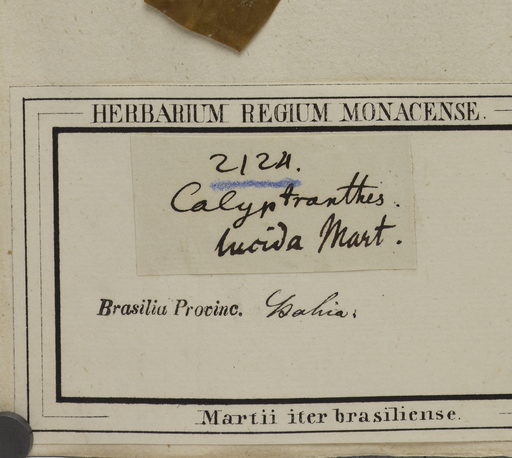 HERBARIUM REGIUM MONACENSE.
2124.
Calyptranthes.
lucida Mart.
Brasilia Provinc. Bahia.
Martii iter brasiliense.